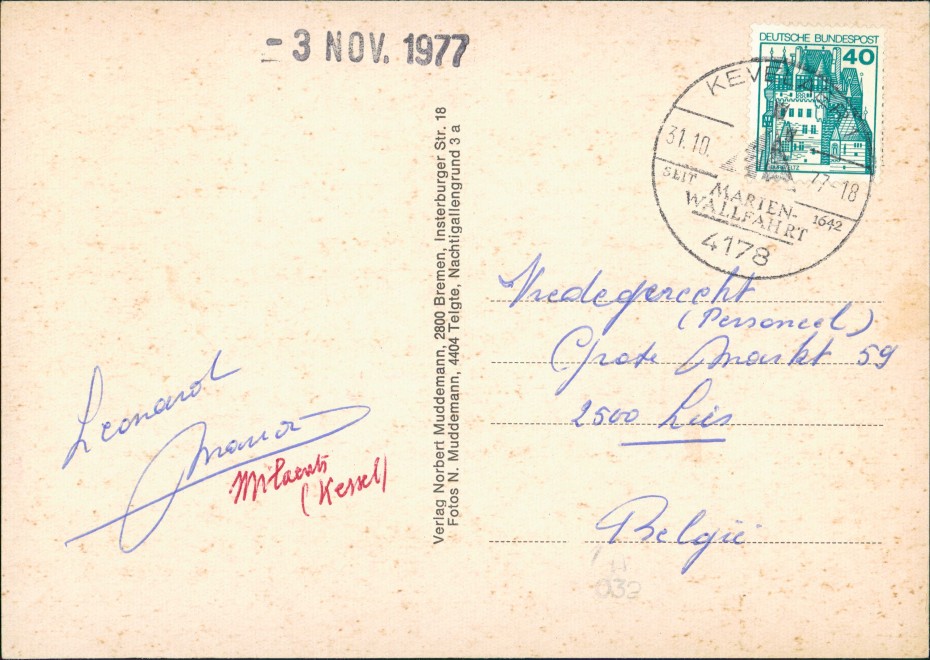 - 3 NOV. 1977
DEUTSCHE BUNDESPOST
40
KEVELAER
31.10. 77-18
SEIT MARIEN- 1642
WALLFAHRT
4178
Verlag Norbert Muddemann, 2800 Bremen, Insterburger Str. 18
Fotos N. Muddemann, 4404 Telgte, Nachtigallengrund 3 a
Vredegerecht
(Personeel)
Grote Markt 59
2500 Lier
België
Leonard
Maria
(Kessel)
032